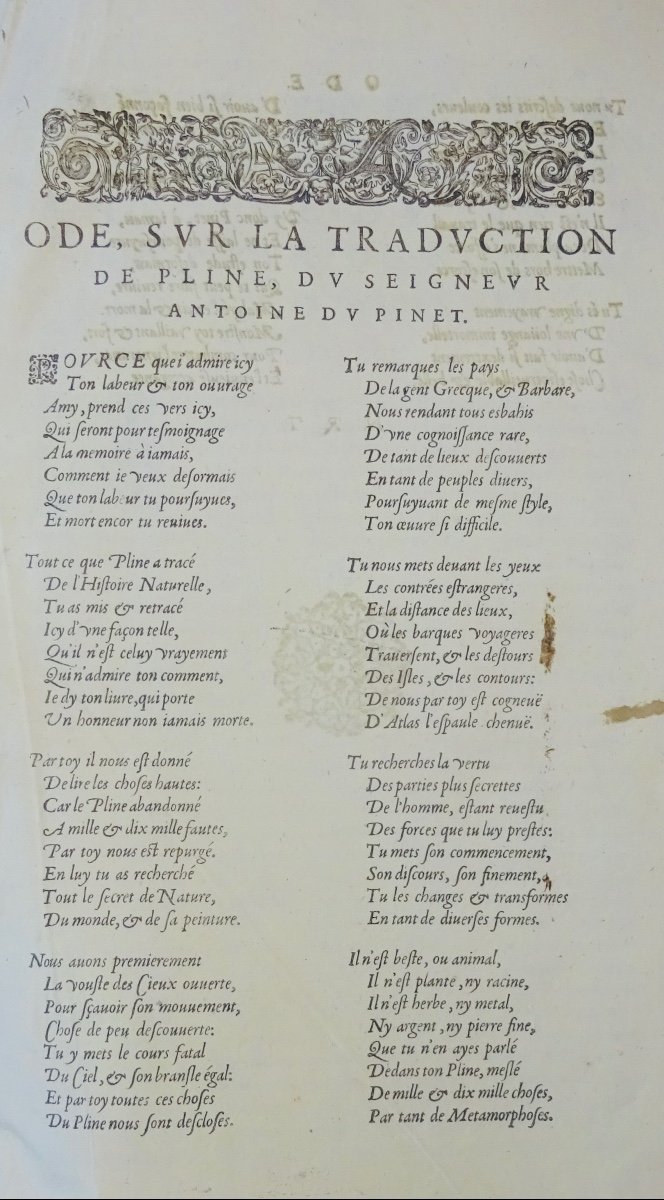 ODE, SVR LA TRADVCTION
DE PLINE, DV SEIGNEVR
ANTOINE DV PINET.
POVRCE que i'admire icy
Ton labeur & ton ouurage
Amy, prend ces vers icy,
Qui ſeront pour teſmoignage
A la memoire à iamais,
Comment ie veux deſormais
Que ton labeur tu pourſuyues,
Et mort encor tu reuiues.
Tout ce que Pline a tracé
De l'Hiſtoire Naturelle,
Tu as mis & retracé
Icy d'vne façon telle,
Qu'il n'eſt celuy vrayement
Qui n'admire ton comment,
Ie dy ton liure, qui porte
Vn honneur non iamais morte.
Par toy il nous eſt donné
De lire les choſes hautes:
Car le Pline abandonné
A mille & dix mille fautes,
Par toy nous eſt repurgé.
En luy tu as recherché
Tout le ſecret de Nature,
Du monde, & de ſa peinture.
Nous auons premierement
La vouſte des Cieux ouuerte,
Pour ſçauoir ſon mouuement,
Choſe de peu deſcouuerte:
Tu y mets le cours fatal
Du Ciel, & ſon branſle égal:
Et par toy toutes ces choſes
Du Pline nous ſont deſcloſes.
Tu remarques les pays
De la gent Grecque, & Barbare,
Nous rendant tous esbahis
D'vne cognoiſſance rare,
De tant de lieux deſcouuerts
En tant de peuples diuers,
Pourſuyuant de meſme ſtyle,
Ton œuure ſi difficile.
Tu nous mets deuant les yeux
Les contrées eſtrangeres,
Et la diſtance des lieux,
Où les barques voyageres
Trauerſent, & les deſtours
Des Iſles, & les contours:
De nous par toy eſt cogneuë
D'Atlas l'eſpaule chenuë.
Tu recherches la vertu
Des parties plus ſecrettes
De l'homme, eſtant reueſtu
Des forces que tu luy preſtes:
Tu mets ſon commencement,
Son diſcours, ſon finement,
Tu les changes & transformes
En tant de diuerſes formes.
Il n'eſt beſte, ou animal,
Il n'eſt plante, ny racine,
Il n'eſt herbe, ny metal,
Ny argent, ny pierre fine,
Que tu n'en ayes parlé
Dedans ton Pline, meſlé
De mille & dix mille choſes,
Par tant de Metamorphoſes.